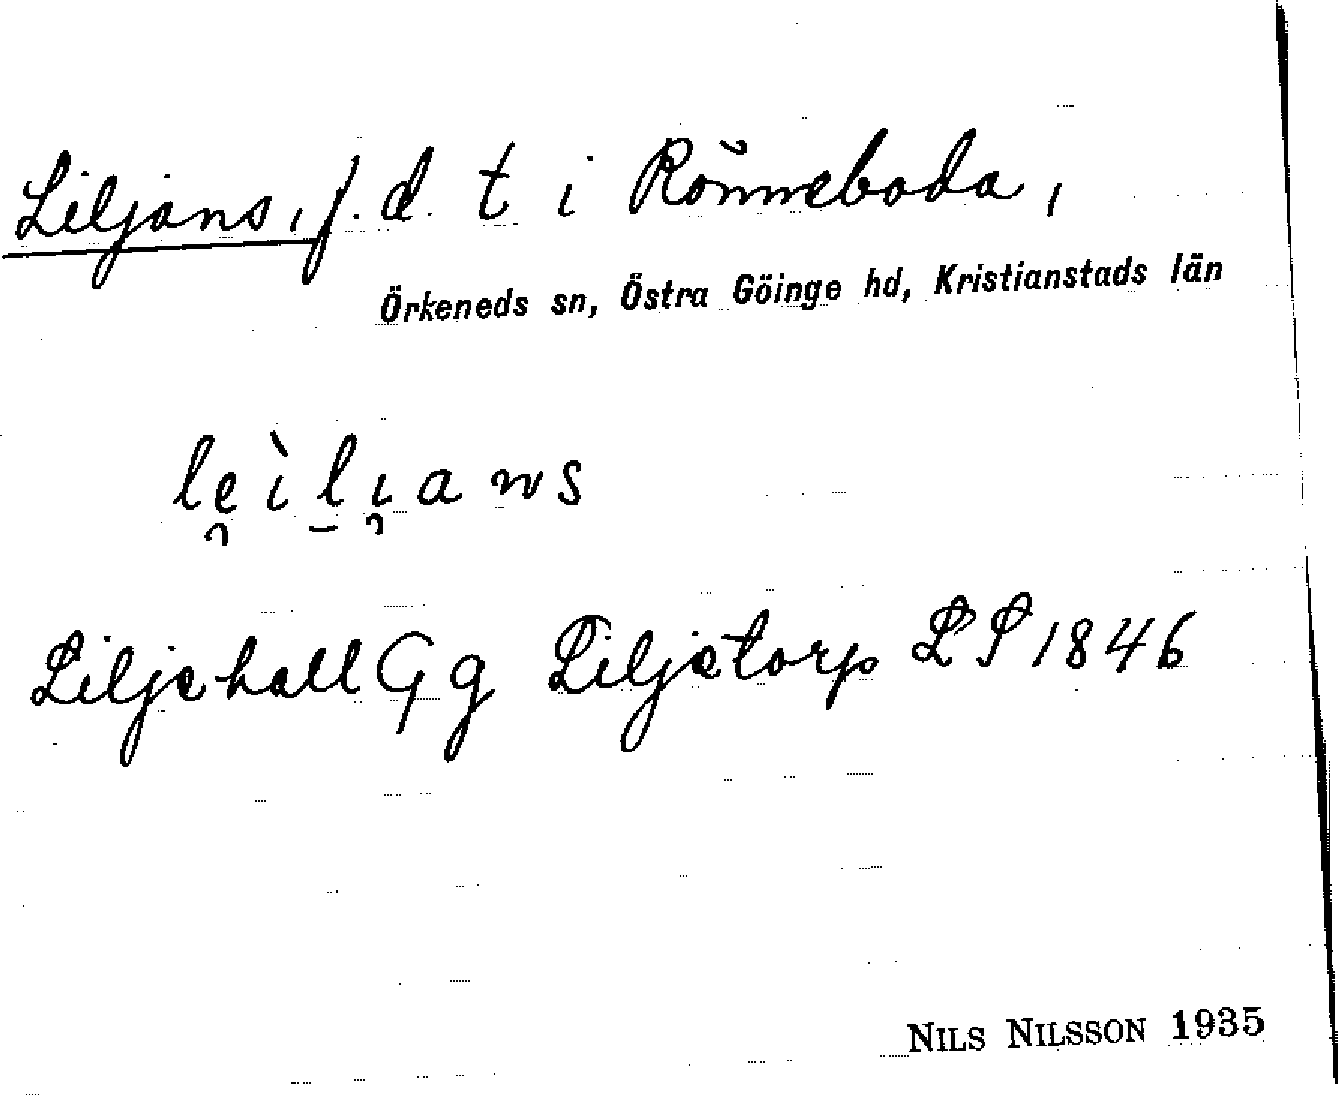 Liljans, f. d. t i Rönneboda,
Örkeneds sn, Östra Göinge hd, Kristianstads län
le̯ìl̠ı̯ans
Liljehall Gg Liljetorp LS 1846
NILS NILSSON 1935